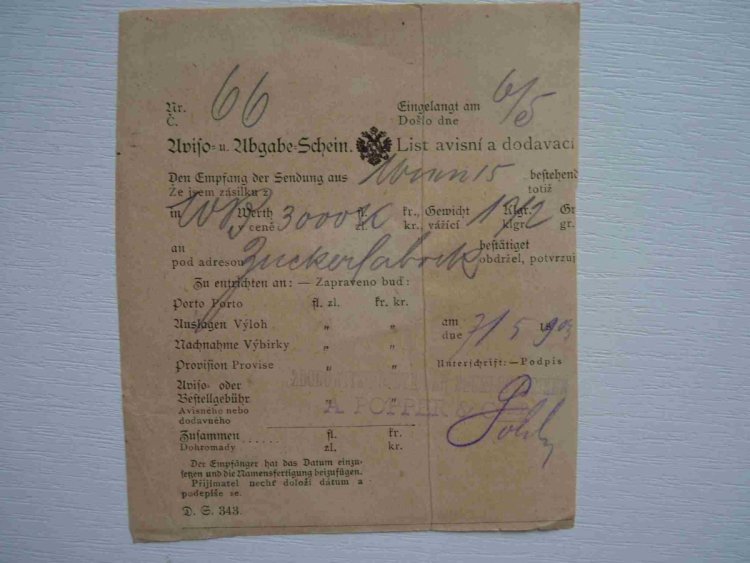 Nr. 66 Eingelangt am 6/5
Č. Došlo dne
Aviso- u. Abgabe-Schein. List avisní a dodavací
Den Empfang der Sendung aus Wien 15 bestehend
Že jsem zásilku z totiž
in Werth 3000 K fl. kr., Gewicht Klgr. Gr
v ceně zl. kr., vážící klgr. gr.
an Zuckerfabrik bestätiget
pod adresou obdržel, potvrzuj
Zu entrichten an: — Zapraveno buď:
Porto Porto fl. zl. kr. kr.
Auslagen Výloh " " am 7/5 18 903
dne
Nachnahme Výbirky " "
Provision Provise " " Unterschrift: — Podpis
Aviso- oder
Bestellgebühr " "
A. POPPER &
Avisného nebo
dodavného
Zusammen ...... fl. kr.
Dohromady zl. kr.
Der Empfänger hat das Datum einzu-
setzen und die Namensfertigung beizufügen.
Přijímatel nechť doloží datum a
podepíše se.
D. S. 343.